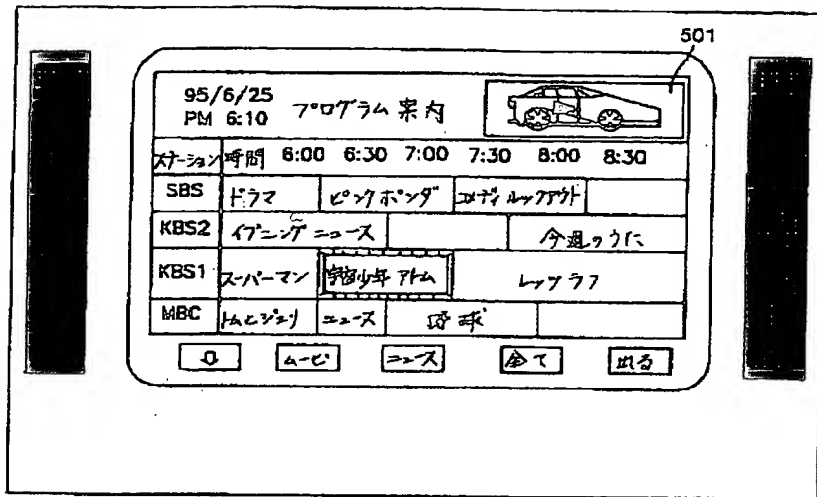 501
95/6/25
PM 6:10 プログラム案内
ステーション 時間 6:00 6:30 7:00 7:30 8:00 8:30
SBS ドラマ ピンクポンダ コメディ ルックアウト
KBS2 イブニングニュース 今週のうた
KBS1 スーパーマン 宇宙少年 アトム レッツラフ
MBC トムとジェリ ニュース 野球
⇩ ムービ ニュース 全て 出る